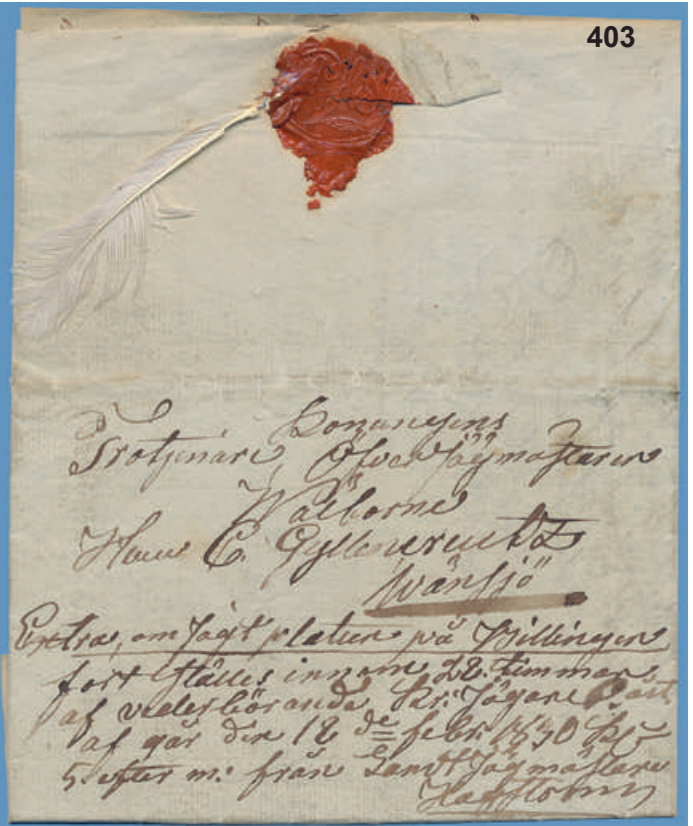 403
Konungens
Trotjenare, Öfver Jägmästaren
Wälborne
Herr C. Gyllen
Wänsjö
Extra, om Jagt platser på Billingen
fort ställes innom 28. timmar
af vederbörande Kr: Jägare
af går den 18 de febr. 1830 Kl
5. efter m: från Landt Jägmästare